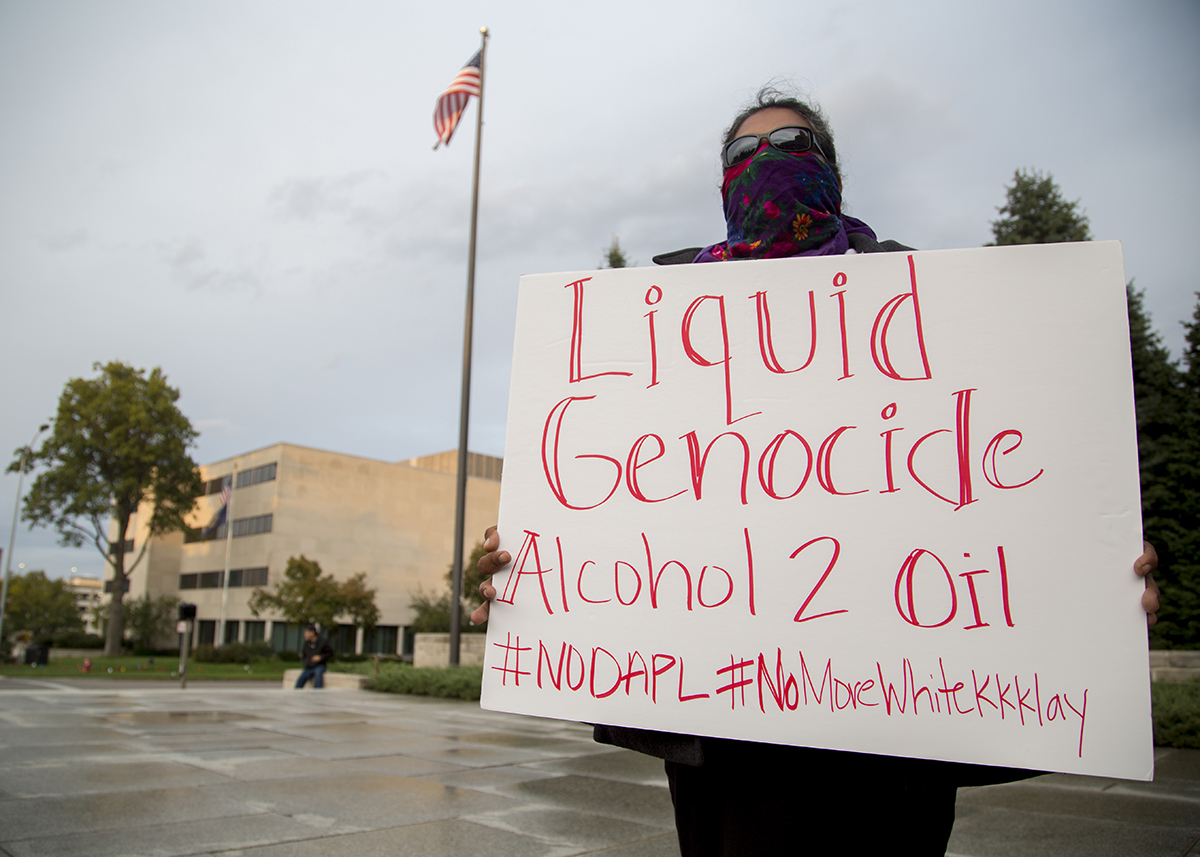 Liquid
Genocide
Alcohol 2 Oil
#NODAPL #NoMoreWhiteKKKlay